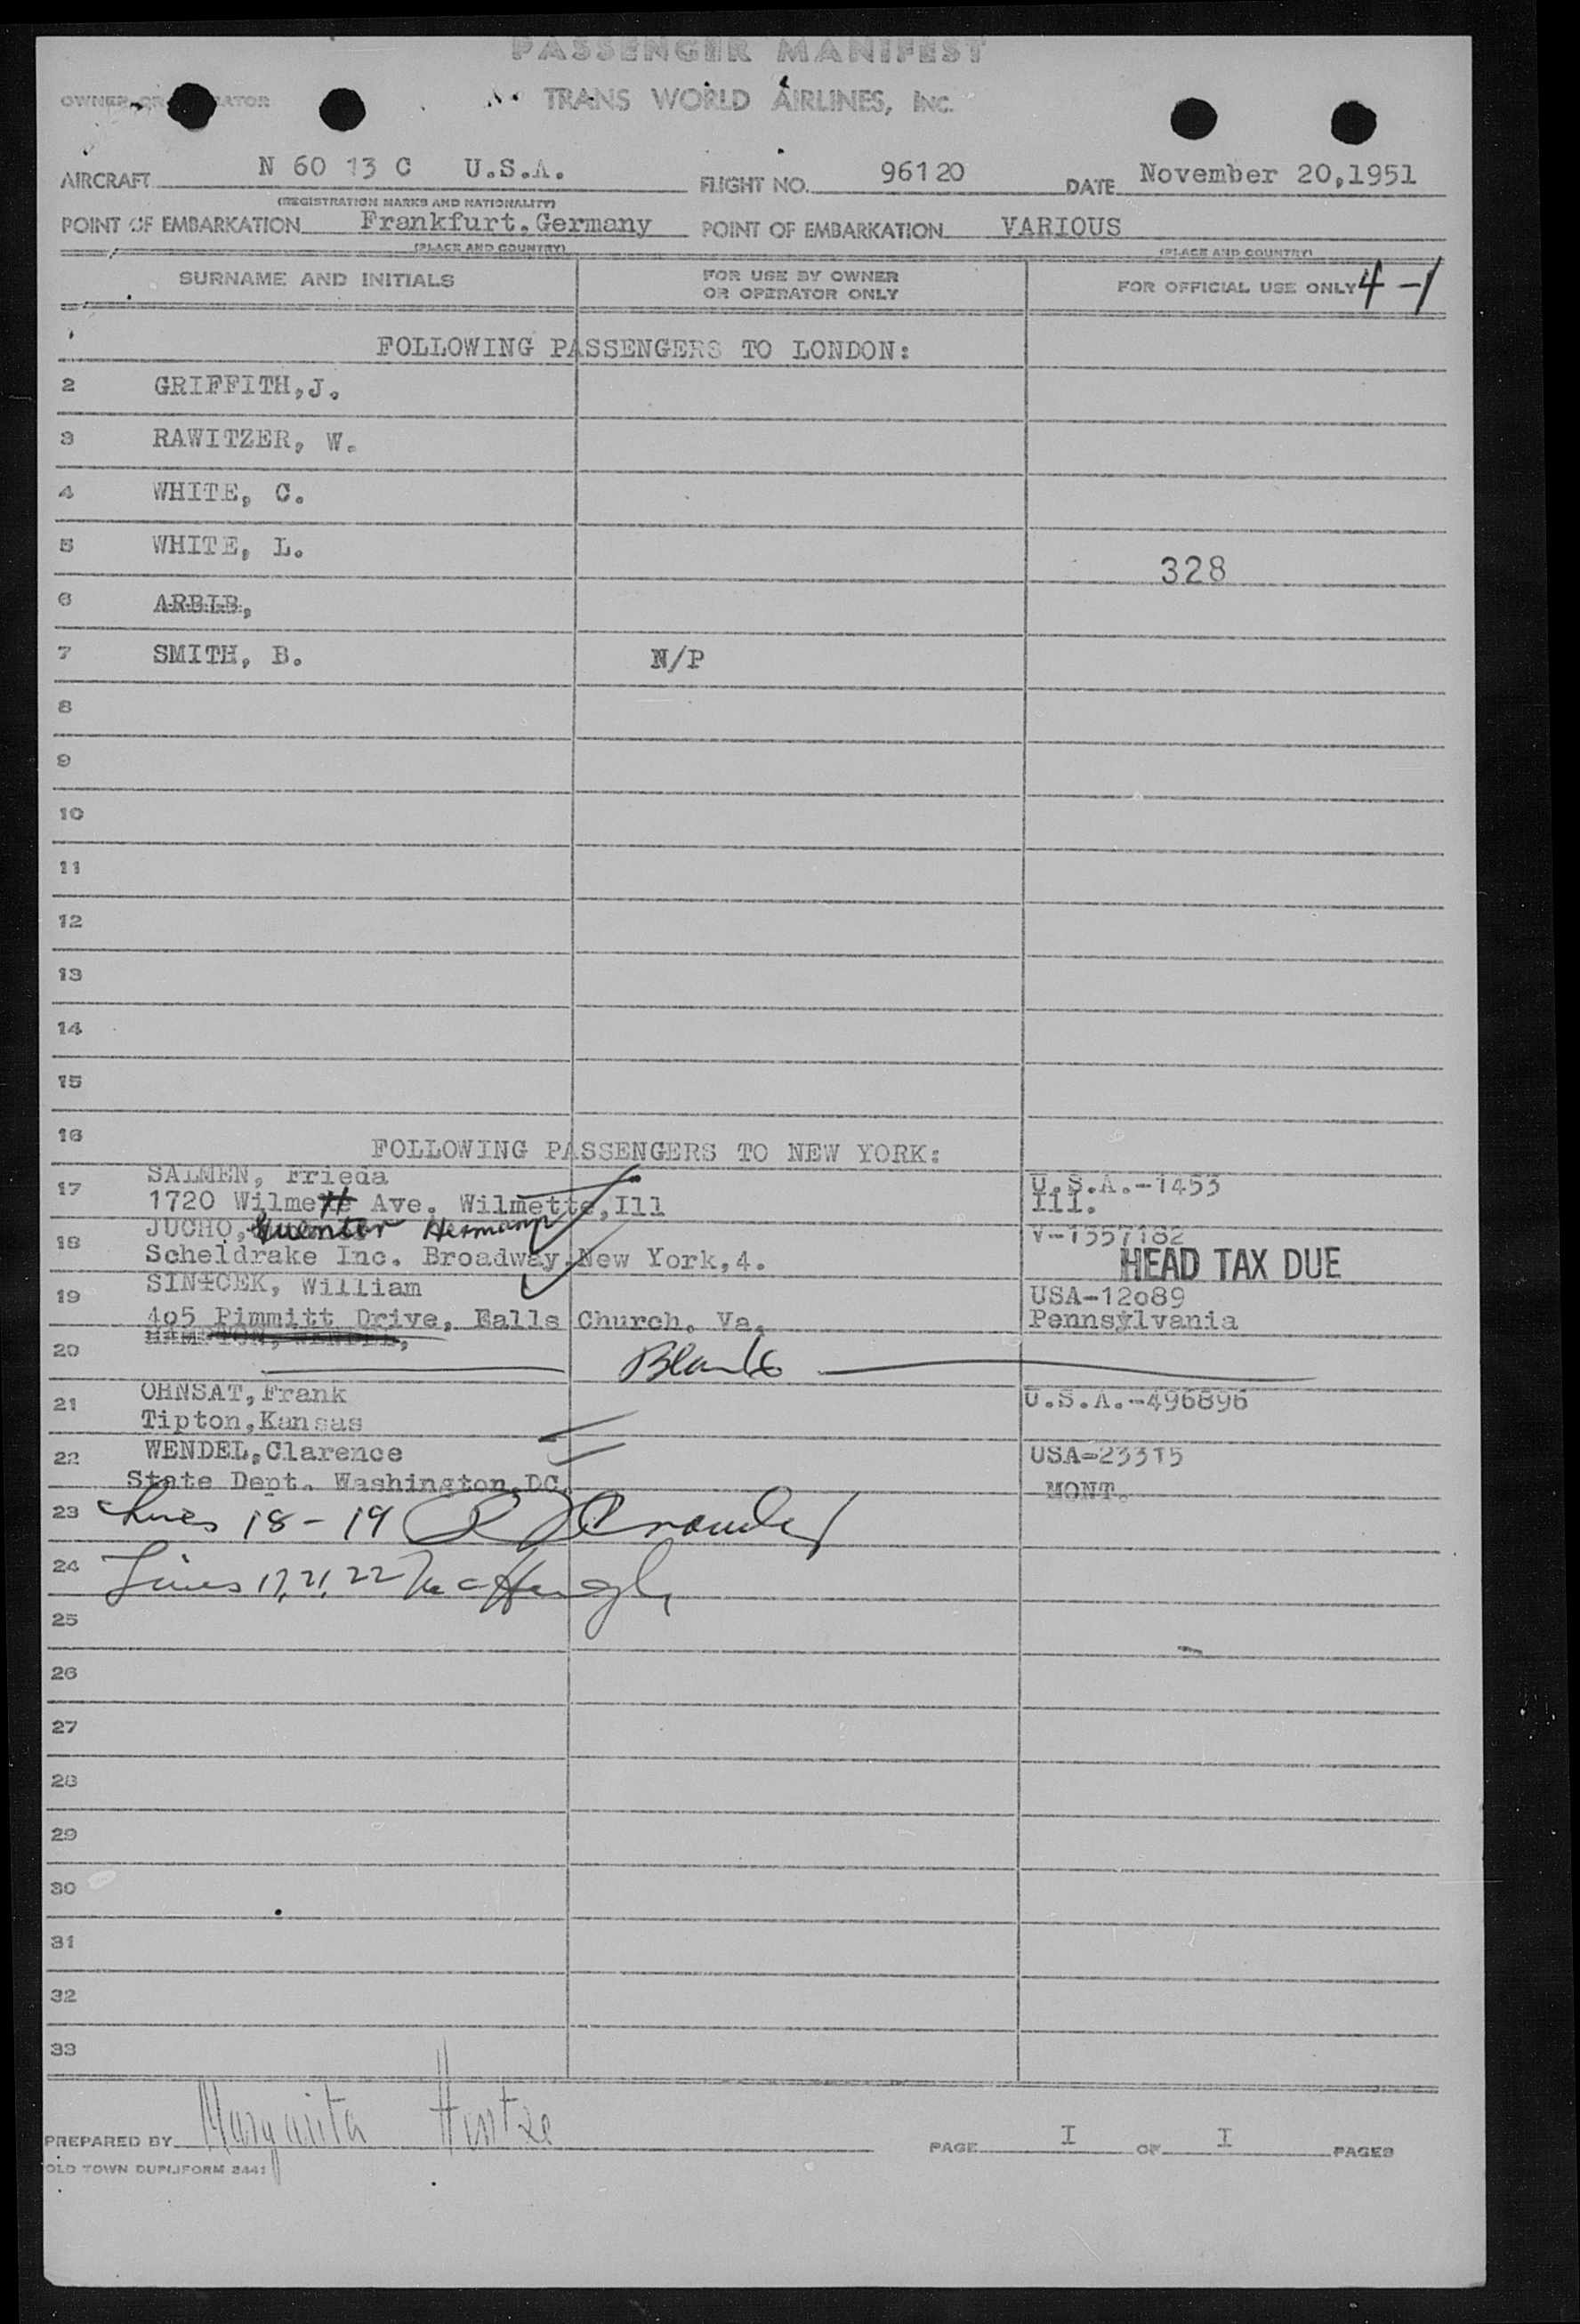 PASSENGER MANIFEST
OWNER OR OPERATOR TRANS WORLD AIRLINES, INC.
AIRCRAFT N 60 13 C U.S.A. FLIGHT NO. 96120 DATE November 20,1951
(REGISTRATION MARKS AND NATIONALITY)
POINT OF EMBARKATION Frankfurt.Germany POINT OF EMBARKATION VARIOUS
(PLACE AND COUNTRY) (PLACE AND COUNTRY)
SURNAME AND INITIALS FOR USE BY OWNER OR OPERATOR ONLY FOR OFFICIAL USE ONLY 4-1
FOLLOWING PASSENGERS TO LONDON:
2 GRIFFITH,J.
3 RAWITZER, W.
4 WHITE, C.
5 WHITE, L. 328
6 ARBIB,
7 SMITH, B. N/P
8
9
10
11
12
13
14
15
16 FOLLOWING PASSENGERS TO NEW YORK:
17 SALMEN, Frieda U.S.A.-1453
1720 Wilmette Ave. Wilmette,Ill Ill.
18 JUCHO, Guenter Hermann V-1557182
Scheldrake Inc. Broadway,New York,4. HEAD TAX DUE
19 SINICEK, William USA-12089
405 Pimmitt Drive, Falls Church, Va. Pennsylvania
20 Blank
21 OHNSAT,Frank U.S.A.-496896
Tipton,Kansas
22 WENDEL,Clarence USA-23315
State Dept. Washington,DC. MONT.
23 Lines 18-19
24 Lines 17,21,22 McHugh
25
26
27
28
29
30
31
32
33
PREPARED BY Margarita Hintze PAGE I OF I PAGES
OLD TOWN DUPLIFORM 3441